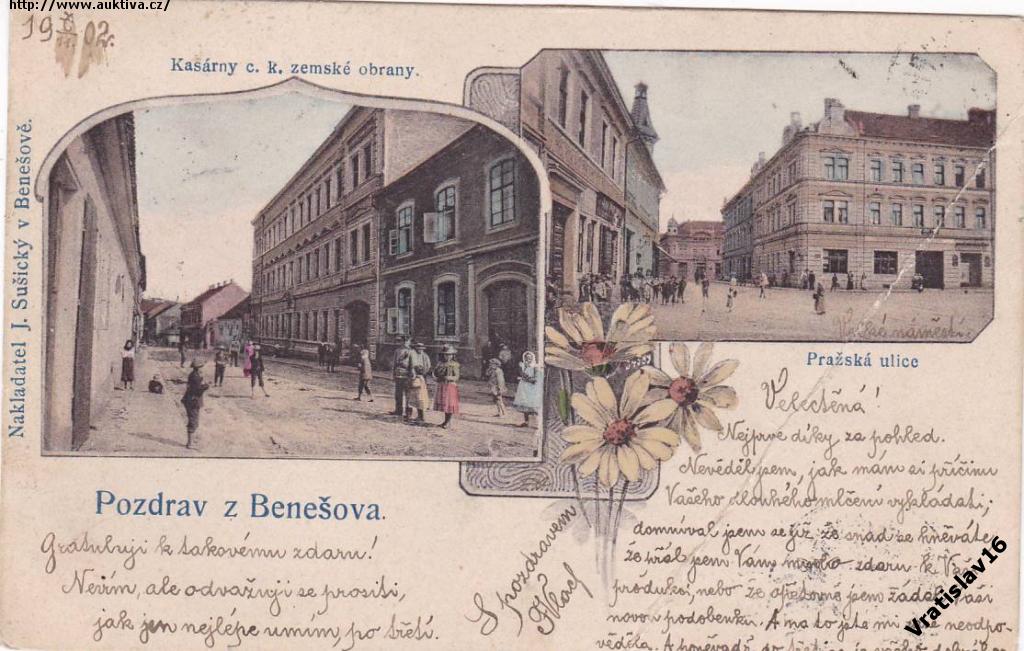 http://www.auktiva.cz/
19 02
Kasárny c. k. zemské obrany.
Nakladatel J. Sušický v Benešově.
Velké náměstí.
Pražská ulice
Pozdrav z Benešova.
Velectěná!
Nejprve díky za pohled.
Nevěděl jsem, jak mám si příčinu
Vašeho dlouhého mlčení vykládati;
domníval jsem se již, že snad se hněváte
že přál jsem Vám mnoho zdaru k
produkci, nebo že opětovně jsem žádal
novou podobenku. A ma to jste mi neodpo-
věděla. A poněvadž
Gratuluji k takovému zdaru!
Nevím, ale odvažuji se prositi,
jak jen nejlépe umím, po třetí.
S pozdravem
Vratislav16